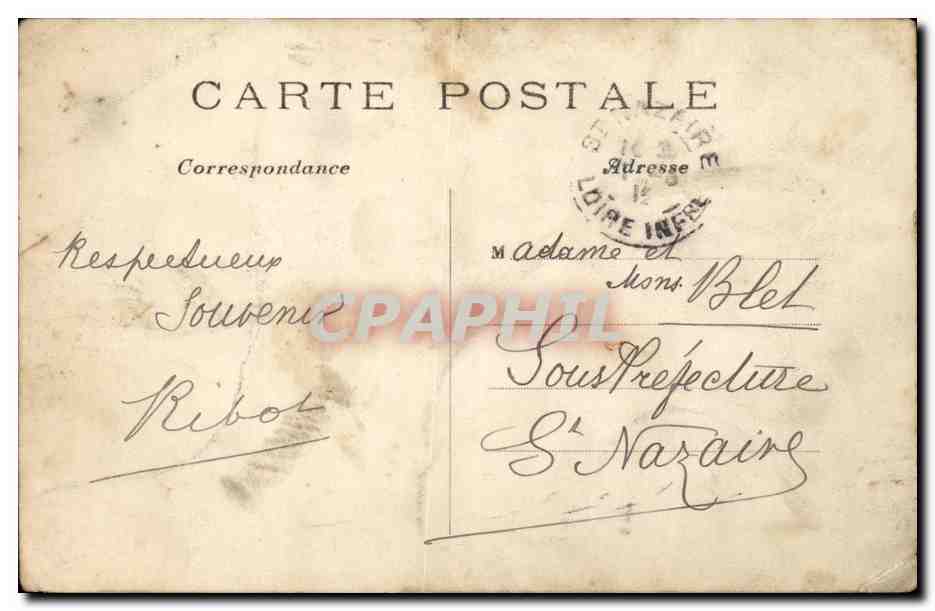 CARTE POSTALE
Correspondance
Adresse
ST NAZAIRE
12
LOIRE INFRE
Respectueux
Souvenir
Ribot
Madame et
Mons. Blet
Sous Préfecture
St Nazaire
CPAPHIL